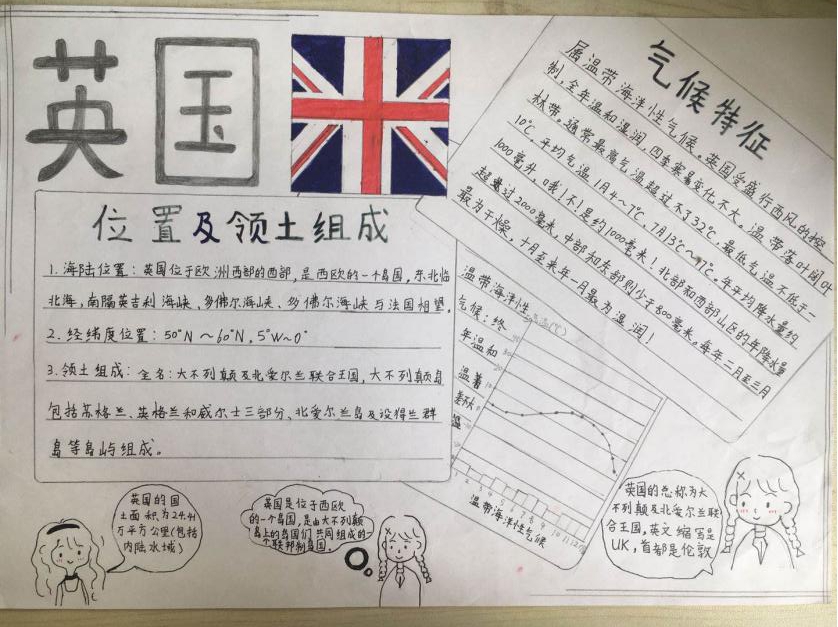 英国
位置及领土组成
1.海陆位置：英国位于欧洲西部的西部，是西欧的一个岛国，东北临
北海，南隔英吉利海峡、多佛尔海峡、多佛尔海峡与法国相望。
2.经纬度位置：50°N～60°N，5°W~0°
3.领土组成：全名：大不列颠及北爱尔兰联合王国，大不列颠岛
包括苏格兰、英格兰和威尔士三部分、北爱尔兰岛及设得兰群
岛等岛屿组成。
气候特征
属温带海洋性气候。英国受盛行西风的控
制，全年温和湿润，四季寒暑变化不大。温带落叶阔叶
林带。通常最高气温超过不了32℃，最低气温不低于-
10℃，平均气温1月4~7℃，7月13℃~17℃。年平均降水量约
1000毫升，哦！不！是约1000毫米！北部和西部山区的年降水量
超过2000毫米，中部和东部则少于800毫米。每年二月至三月
最为干燥，十月至来年一月最为湿润！
温带海洋性
气候：终
年温和
气温(℃)
1 2 3 4 5 6 7 8 9 10 11 12
温带海洋性气候
英国的国
土面积为24.41
万平方公里(包括
内陆水域)
英国是位于西欧
的一个岛国，是由大不列颠
岛上的岛国们共同组成的一
个联邦制岛国。
英国的总称为大
不列颠及北爱尔兰联
合王国，英文缩写是
UK，首都是伦敦